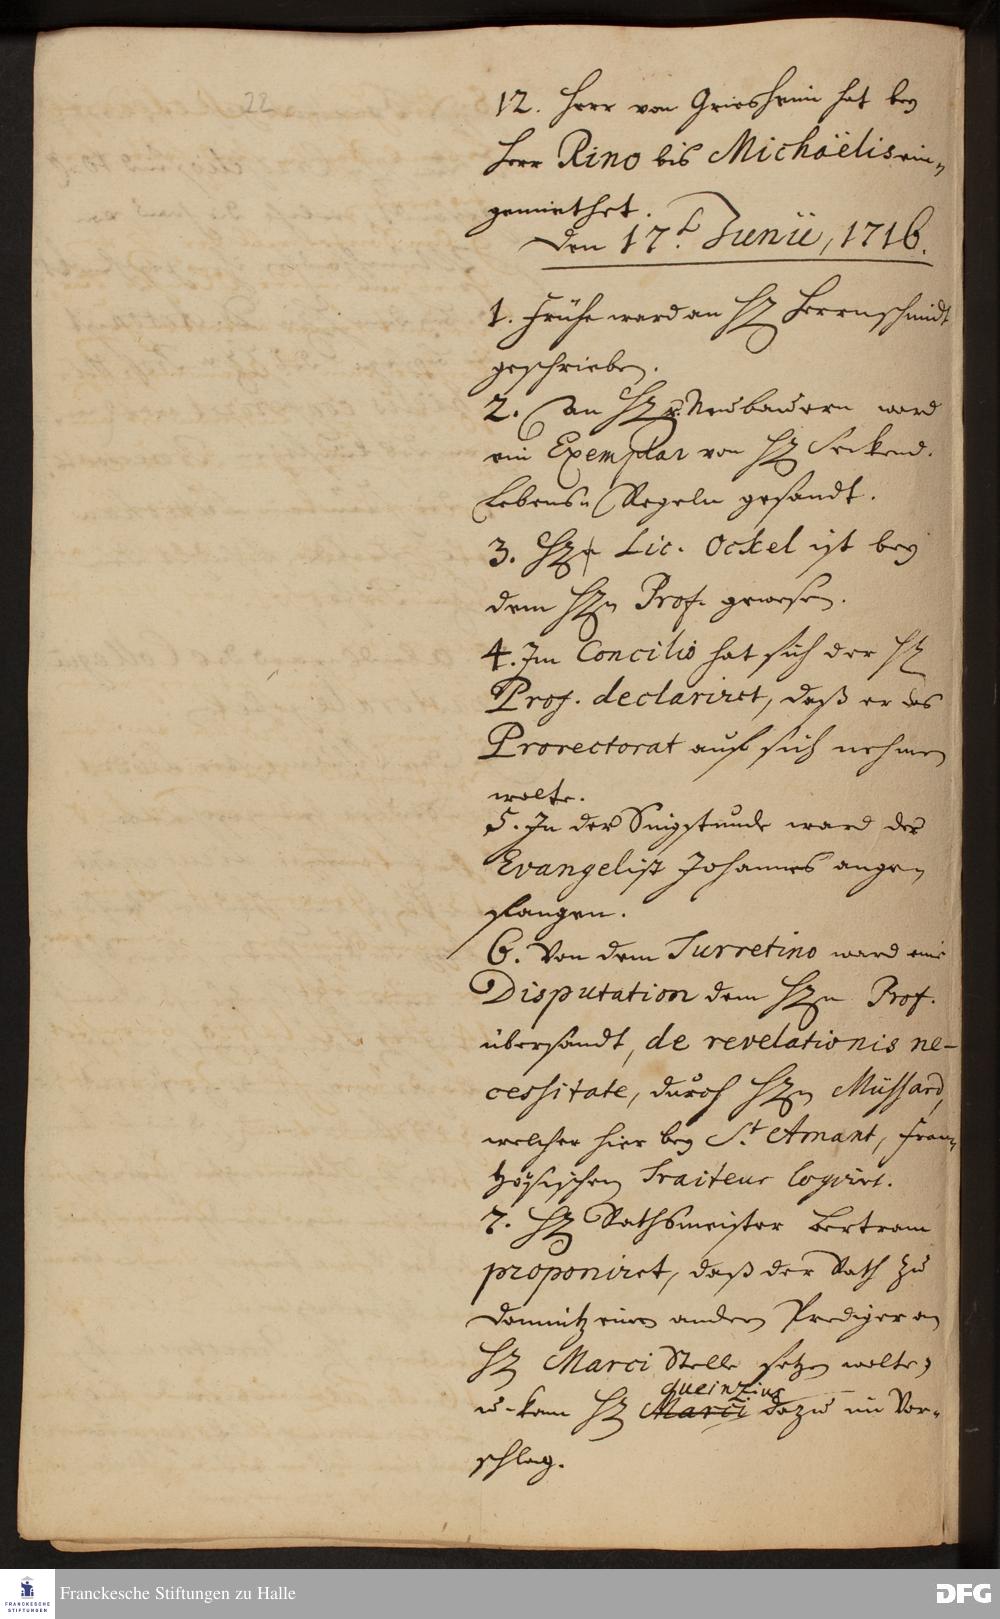 22
12. Herr von Griesheim hat bey
Herr Rino bis Michaëlis ein„
gemiethet.
Den 17.t Junii, 1716.
1. Frühe ward an H. Herrnschmidt
geschrieben.
2. An H. v. Neubauern ward
ein Exemplar von H. Seckend.
Lebens„ Regeln gesandt.
3. Hr. Lic. Ockel ist bey
dem Hn Prof. gewesen.
4. Im Concilio hat sich der H.
Prof. declariret, daß er das
Prorectorat auf sich nehmen
wolte.
5. In der Singstunde ward der
Evangelist Johannes angen
fangen.
6. Von dem Turretino ward eine
Disputation dem Hn Prof.
übersandt, de revelationis ne-
cessitate, durch Hn Müssard,
welcher hier bey St. Amant, Fran„
tzösischen Traiteur logiret.
7. H. Rathsmeister Bertram
proponiret, daß der Rath zu
Domnitz einen andern Prediger an
H. Marci Stelle setzen wolte;
Queinzius
u. kam H. Marci dazu in Vor„
schlag.
Franckesche Stiftungen zu Halle
FRANCKESCHE
STIFTUNGEN
DFG